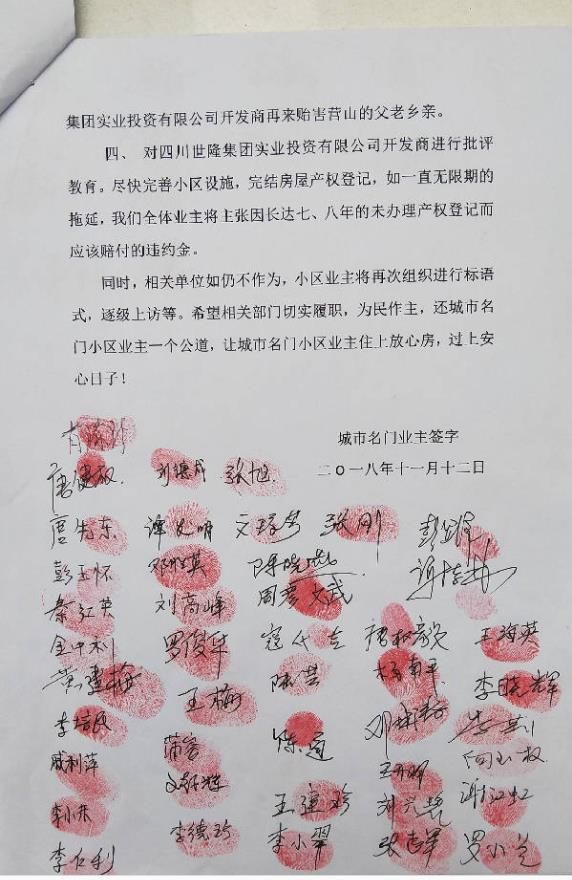 集团实业投资有限公司开发商再来贻害营山的父老乡亲。
四、对四川世隆集团实业投资有限公司开发商进行批评
教育。尽快完善小区设施，完结房屋产权登记，如一直无限期的
拖延，我们全体业主将主张因长达七、八年的未办理产权登记而
应该赔付的违约金。
同时，相关单位如仍不作为，小区业主将再次组织进行标语
式，逐级上访等。希望相关部门切实履职，为民作主，还城市名
门小区业主一个公道，让城市名门小区业主住上放心房，过上安
心日子！
城市名门业主签字
二〇一八年十一月十二日
唐建权 刘德成 张旭
唐先东 张刚
彭玉怀
秦红英 刘高峰 周彦文武
罗俊华 王海英
黄建梅 陈英 杨南平 李晓辉
王梅
李培民 陈道
戚利萍
李小东 王建珍
李仁利 李德珍 李小翠 张志军 罗小兰